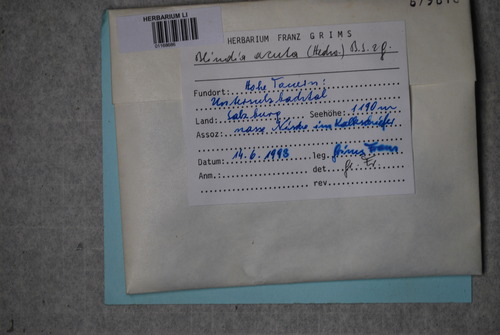 HERBARIUM LI
HERBARIUM FRANZ GRIMS
Blindia acuta (Hedw.) B.S.g.
Fundort: Hohe Tauern:
Untersulzbachtal
Land: Salzburg Seehöhe: 1190 m
Assoz: nasse im Kalkschiefer
Datum: 14.6.1993 leg. Grims Franz
Anm.: det. Gr. Fr.
rev.